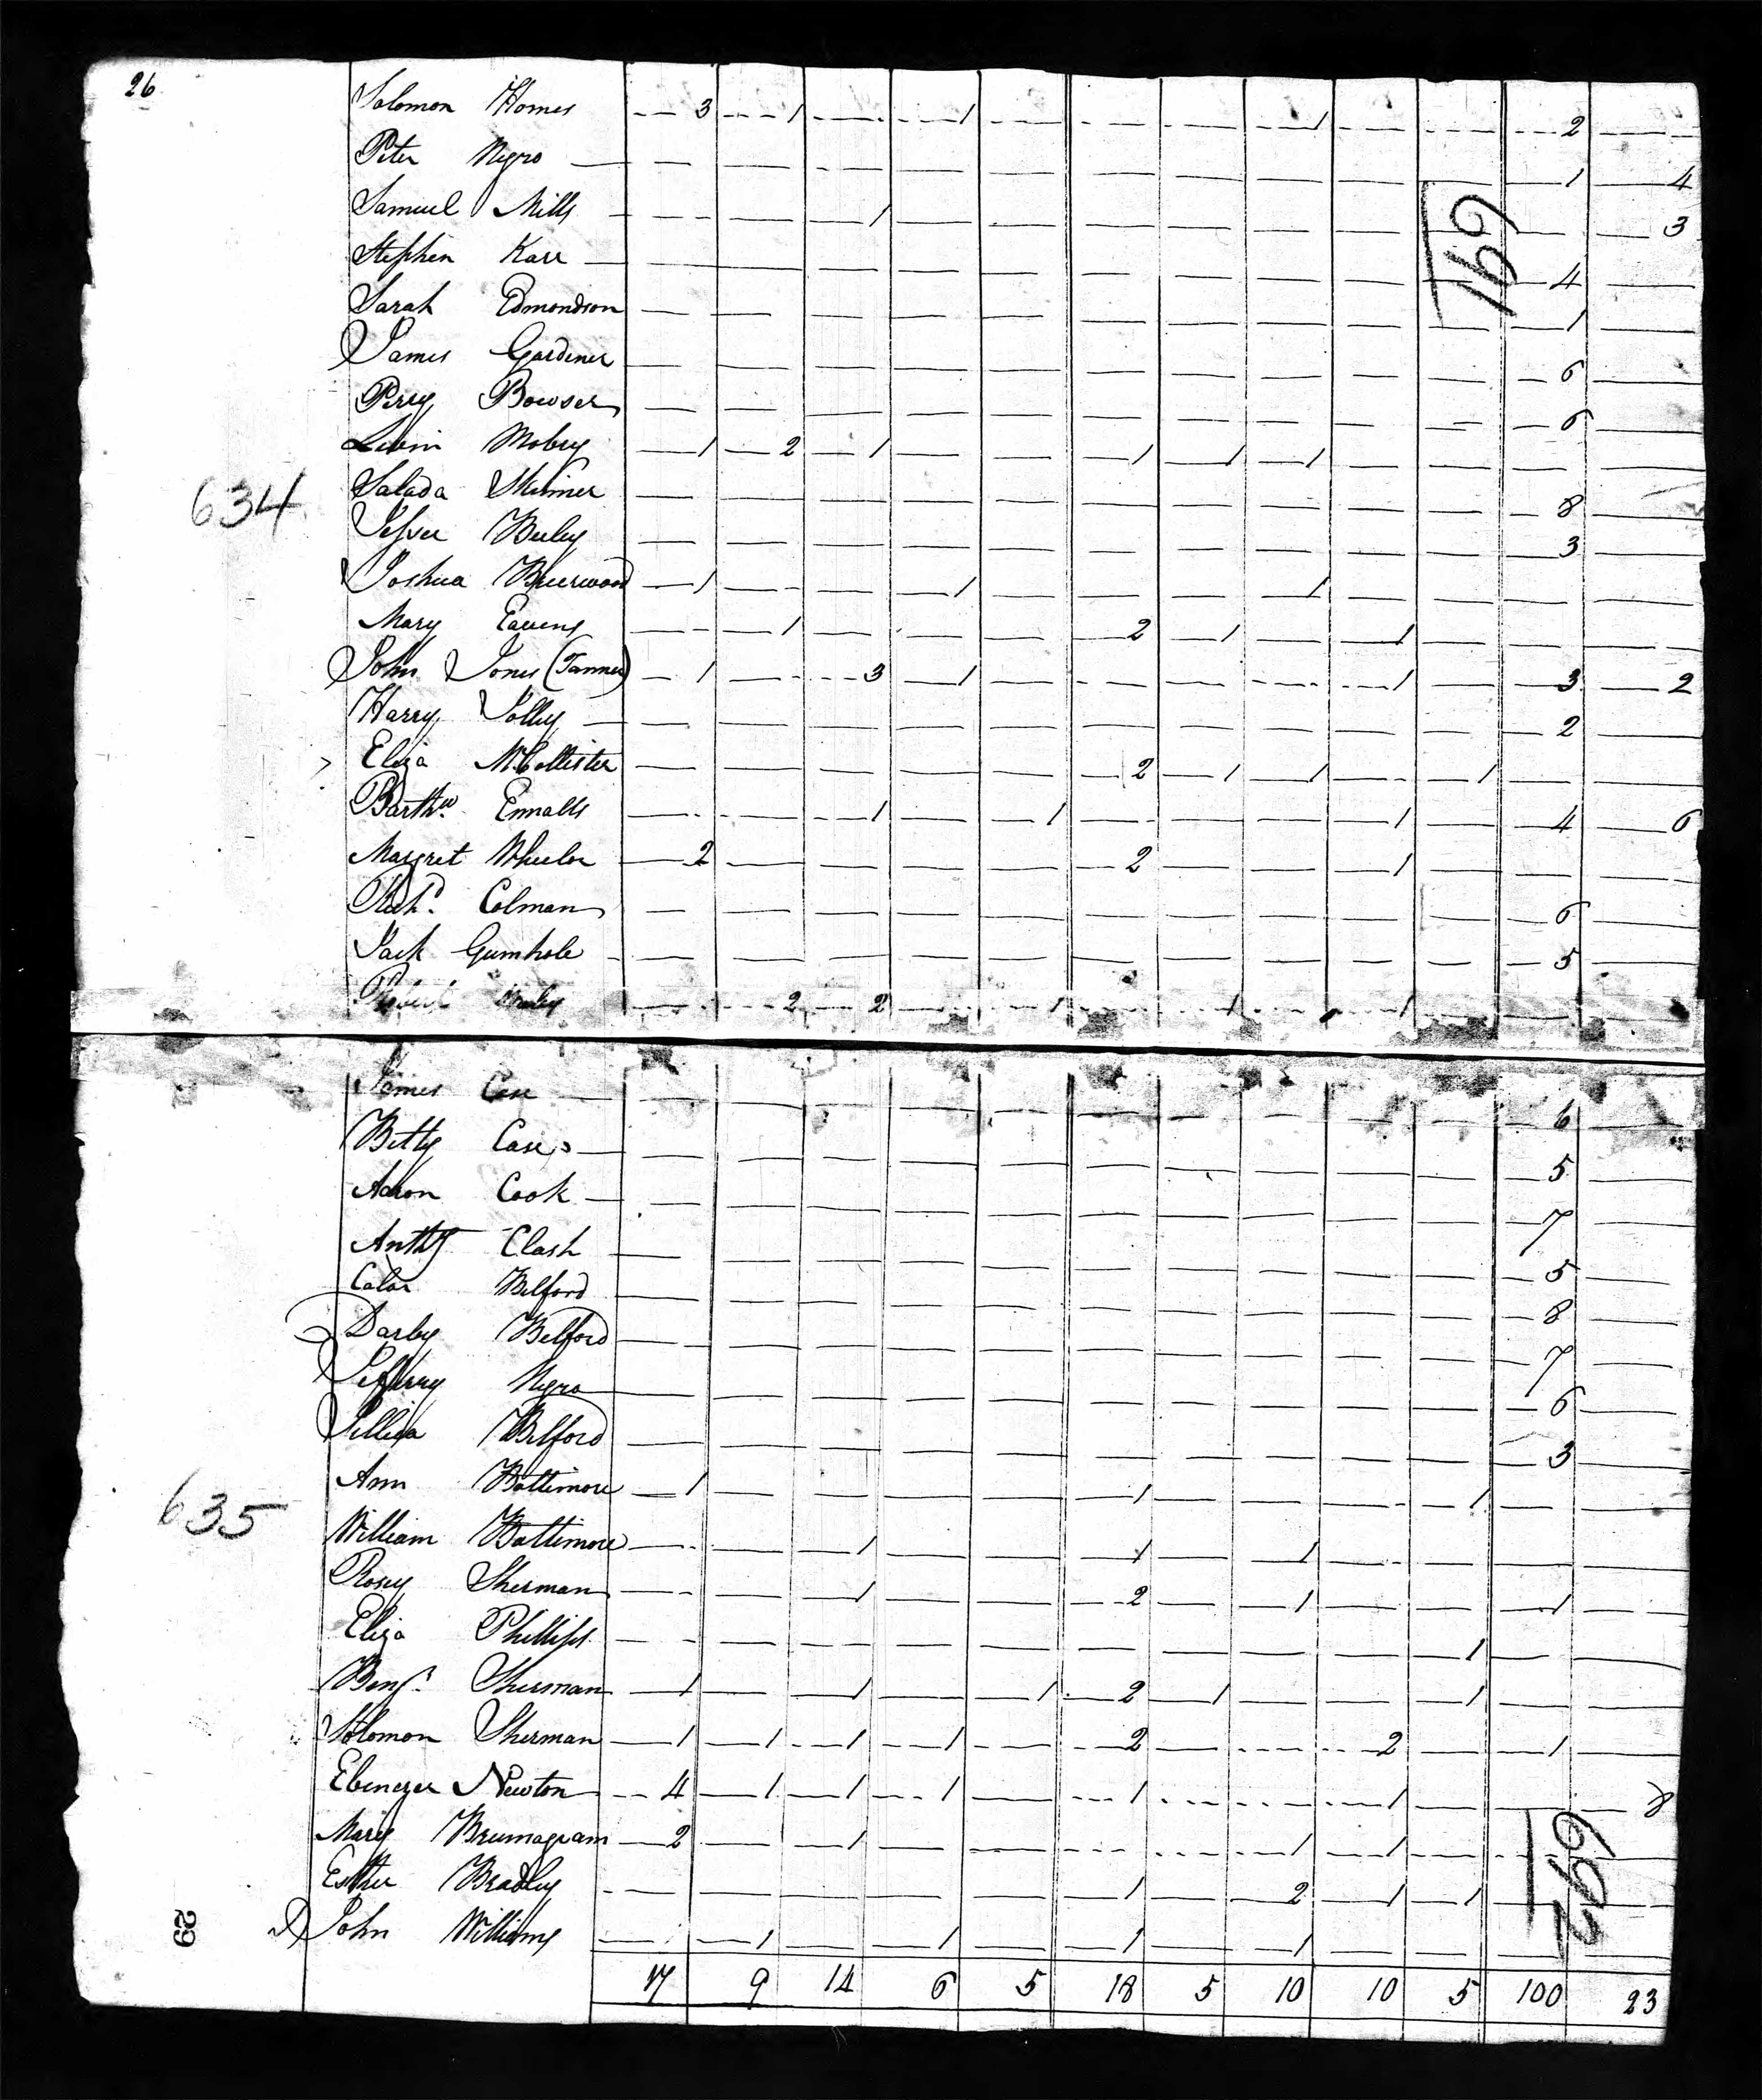 26
Solomon Homes 3 1 1 1 2
Peter Negro 1 4
Samuel Mills 1 3
691
Stephen Karr 4
Sarah Edmondson 1
James Gardener 6
Perry Bowser 6
Levin Mobey 1 2 1 1 1 1
634
Salada Skinner 8
3
Joshua Brerwood 1 1 1
Mary 1 2 1 1
John Jones (Tanner) 1 3 1 1 3 2
Harry Jolley 2
Eliza McCollister 2 1 1 1
Barthw. Ennalls 1 1 1 4 6
Margret Wheelor 2 2 1
Richd. Colman 6
Jack Gumhole 5
Robert 2 2 1 1 1
James Case 6
Betty Case 5
Aaron Cook 7
Anthy Clash 5
Belford 8
Darby Belford 7
Jeffery Negro 6
Belford 3
Ann Battimore 1 1 1
635
William Battimore 1 1 1
Rosey Sherman 1 2 1 1
Eliza Phillips 1
Benj. Sherman 1 1 1 2 1 1
Solomon Sherman 1 1 1 1 2 2 1
Ebenezer Newton 4 1 1 1 1 1 8
Mary Brumagram 2 1 1 1
692
Esther Bradley 1 2 1 1
29
John Williams 1 1 1 1
17 9 14 6 5 18 5 10 10 5 100 23